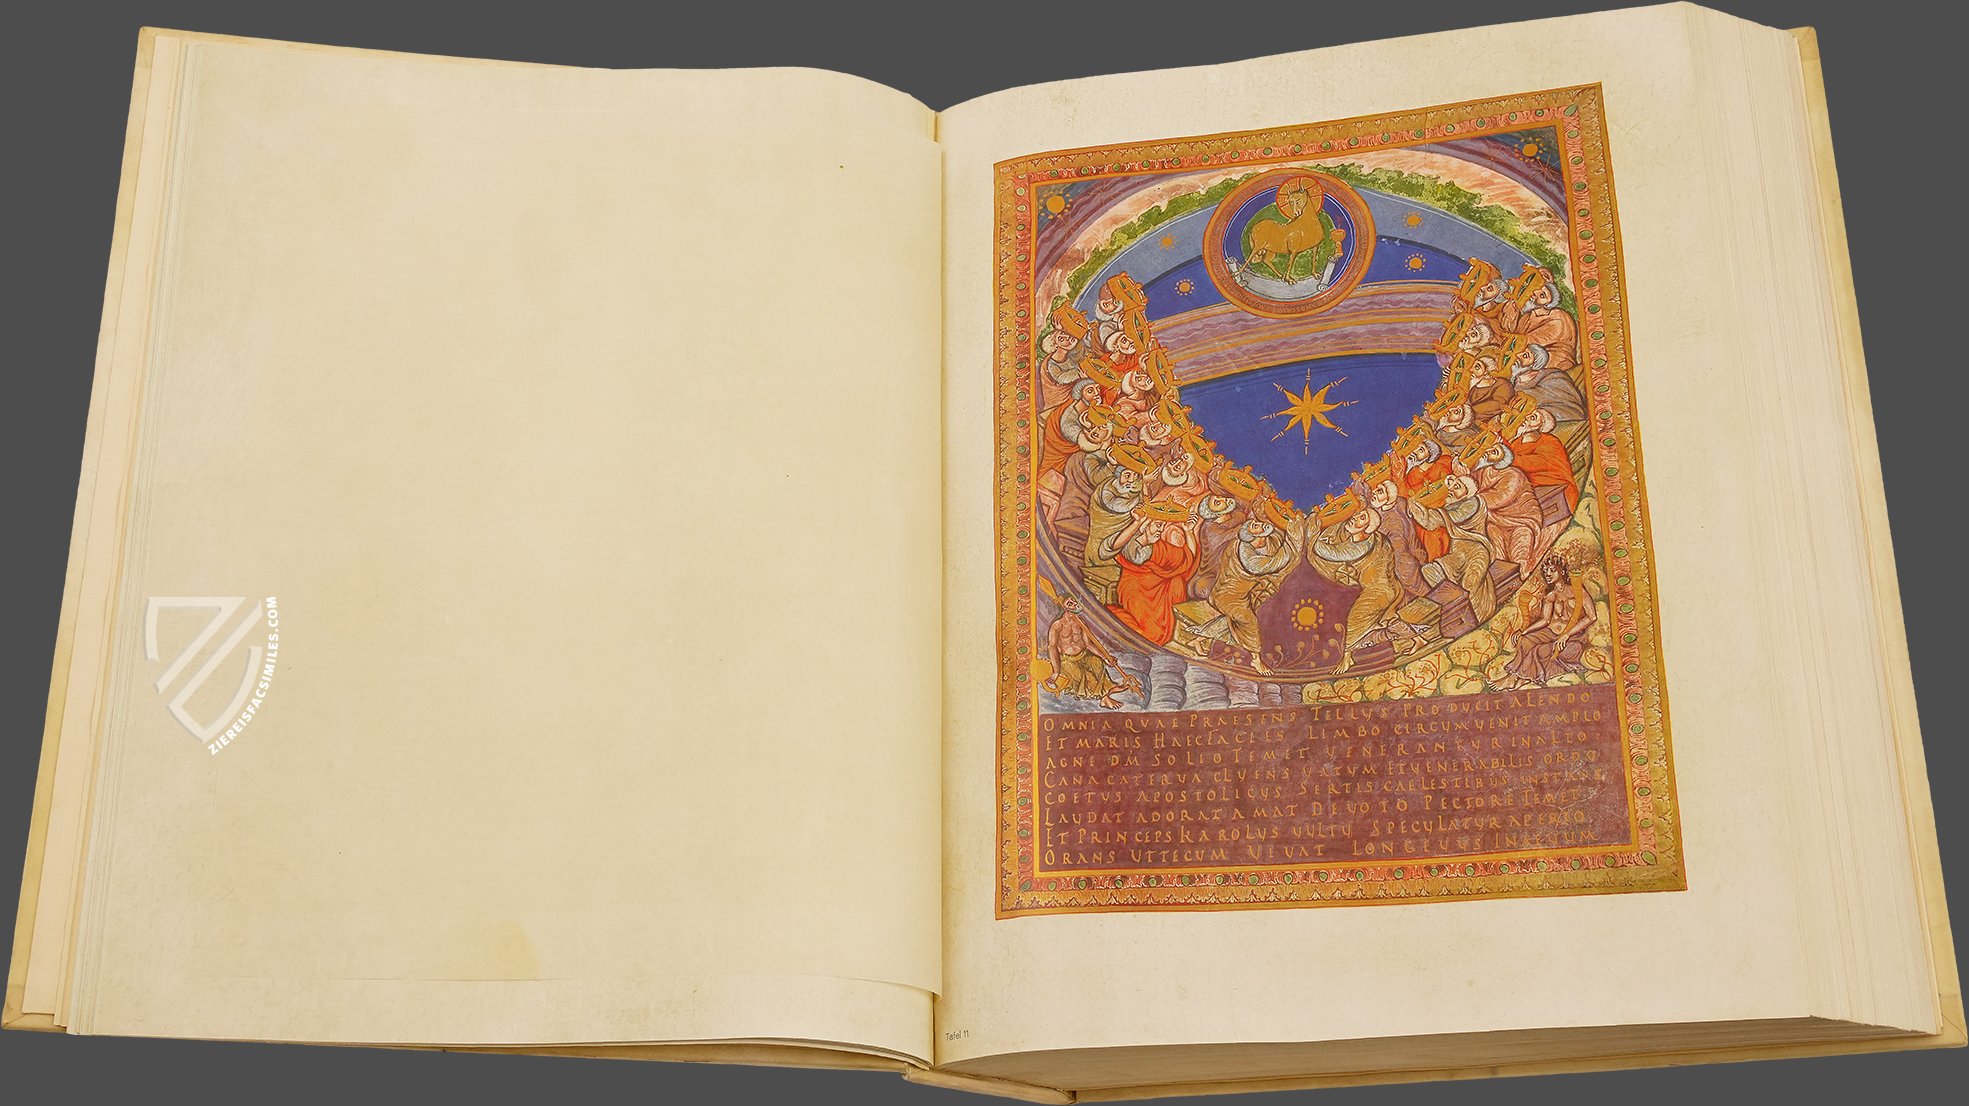 ZIEREISFACSIMILES.COM
OMNIA QUAE PRAESENS TELLUS PRODUCIT ALENDO
ET MARIS HAEC FACIES LIMBO CIRCUMVENIT AMPLO
AGNE DM SOLIO TEMET VENERANTUR IN ALTO
CANA CATERVA CLUENS VATUM ET VENERABILIS ORDO
COETUS APOSTOLICUS SERTIS CAELESTIBUS INSTANS
LAUDAT ADORAT AMAT DEVOTO PECTORE TEMET
ET PRINCEPS KAROLUS VULTU SPECULATUR APERTO
ORANS UT TECUM VIVAT LONGEVUS IN AEVUM
Tafel 11